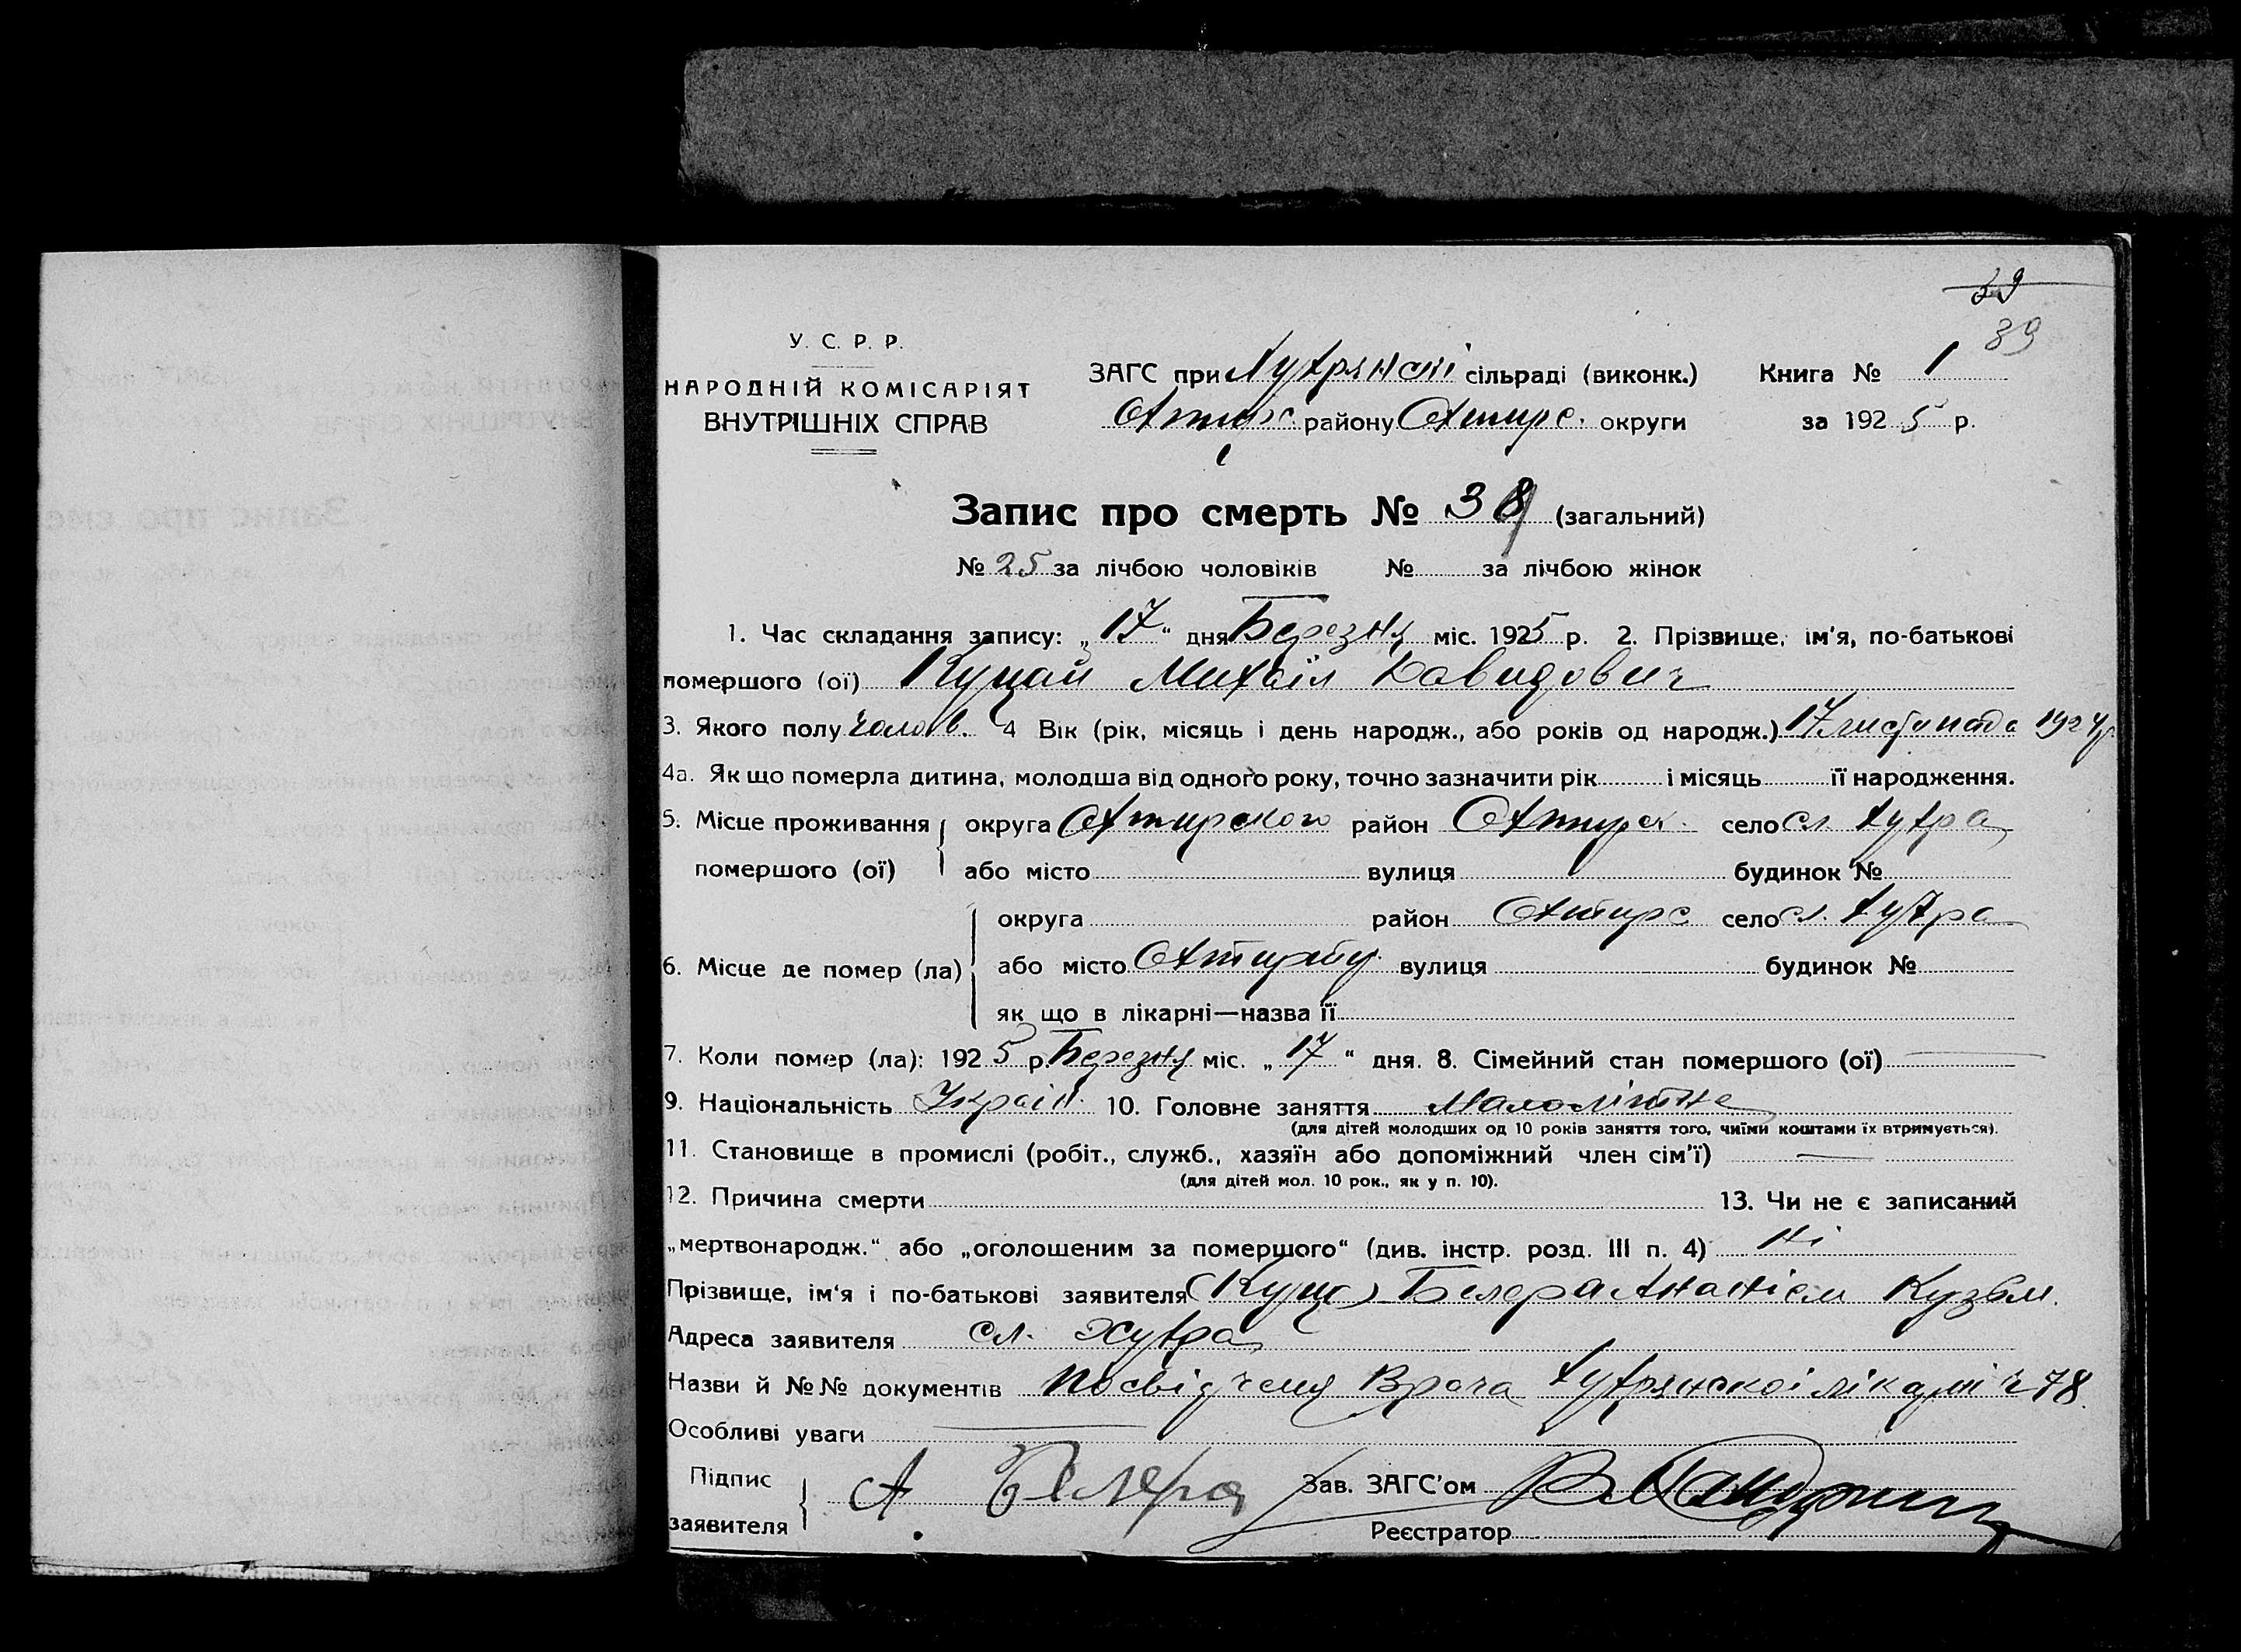 39
39
У. С. Р. Р.
НАРОДНІЙ КОМІСАРІЯТ
ВНУТРІШНІХ СПРАВ
ЗАГС при Хухрянскі сільраді (виконк.) Книга № 1
Охтирс. району Охтирс. округи за 1925 р.
Запис про смерть № 38 (загальний)
№ 25 за лічбою чоловіків № за лічбою жінок
1. Час складання запису: „17" дня Березня міс. 1925 р. 2. Прізвище, ім'я, по-батькові
помершого (ої) Куцай Михаіл Давидович
3. Якого полу Чолов. 4 Вік (рік, місяць і день народж., або років од народж.) 17 листопада 1924 р
4а. Як що померла дитина, молодша від одного року, точно зазначити рік і місяць її народження.
5. Місце проживання помершого (ої) округа Охтирского район Охтирск. село сл. Хухра
або місто вулиця будинок №
6. Місце де помер (ла) округа район Охтирс село сл. Хухра
або місто вулиця будинок №
як що в лікарні—назва її
7. Коли помер (ла): 1925 р. Березня міс. „17" дня. 8. Сімейний стан помершого (ої) —
9. Національність Україн. 10. Головне заняття Малолітне
(для дітей молодших од 10 років заняття того, чиїми коштами їх втримується).
11. Становище в промислі (робіт., служб., хазяїн або допоміжний член сім'ї) —
(для дітей мол. 10 рок., як у п. 10).
12. Причина смерти 13. Чи не є записаний
„мертвонародж." або „оголошеним за помершого" (див. інстр. розд. III п. 4) Ні
Прізвище, ім'я і по-батькові заявителя (Куца) Білера Ананієм Кузьм.
Адреса заявителя сл. Хухра
Назви й №№ документів посвідченя Врача Хухрянскоі лікарні 78.
Особливі уваги —
Підпис заявителя А. Білера Зав. ЗАГС'ом
Реєстратор